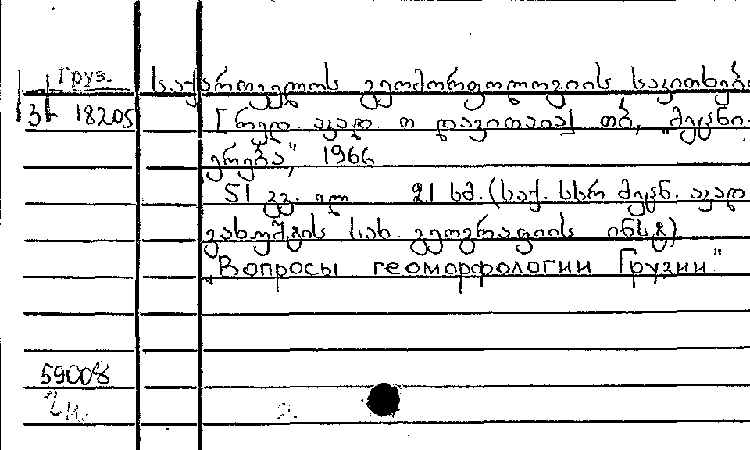 Груз.
საქართველოს გეომორფოლოგიის საკითხები
3k 18205 [რედ. აკად. თ დავითაია] თბ, „მეცნი-
ერება“, 1966
51 გვ. ილ 21 სმ. (საქ. სსრ მეცნ. აკად
ვახუშტის სახ. გეოგრაფიის ინსტ)
„Вопросы геоморфологии Грузии"
59008